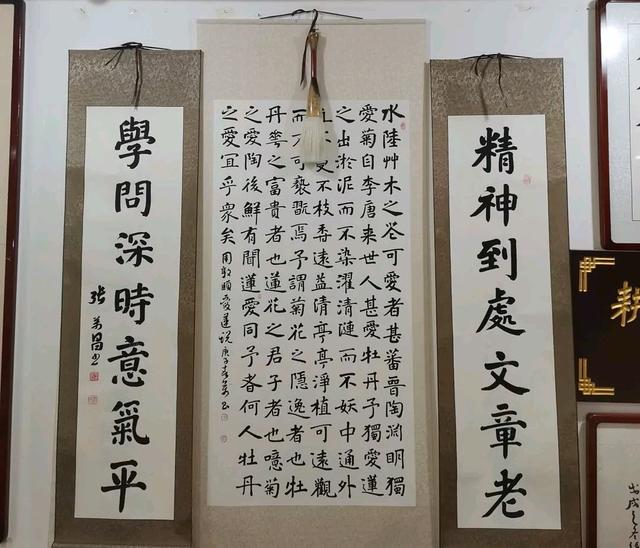 精神到處文章老
水陸艸木之花可愛者甚蕃晉陶淵明獨
愛菊自李唐来世人甚愛牡丹予獨愛蓮
之出淤泥而不染濯清漣而不妖中通外
不枝香遠益清亭亭淨植可遠觀
而不可褻翫焉予謂菊花之隱逸者也牡
丹華之富貴者也蓮花之君子者也噫菊
之愛陶後鮮有聞蓮愛同予者何人牡丹
之愛宜乎衆矣周敦頤愛蓮説庚子
學問深時意氣平
張萬昌书
耕
戊戌